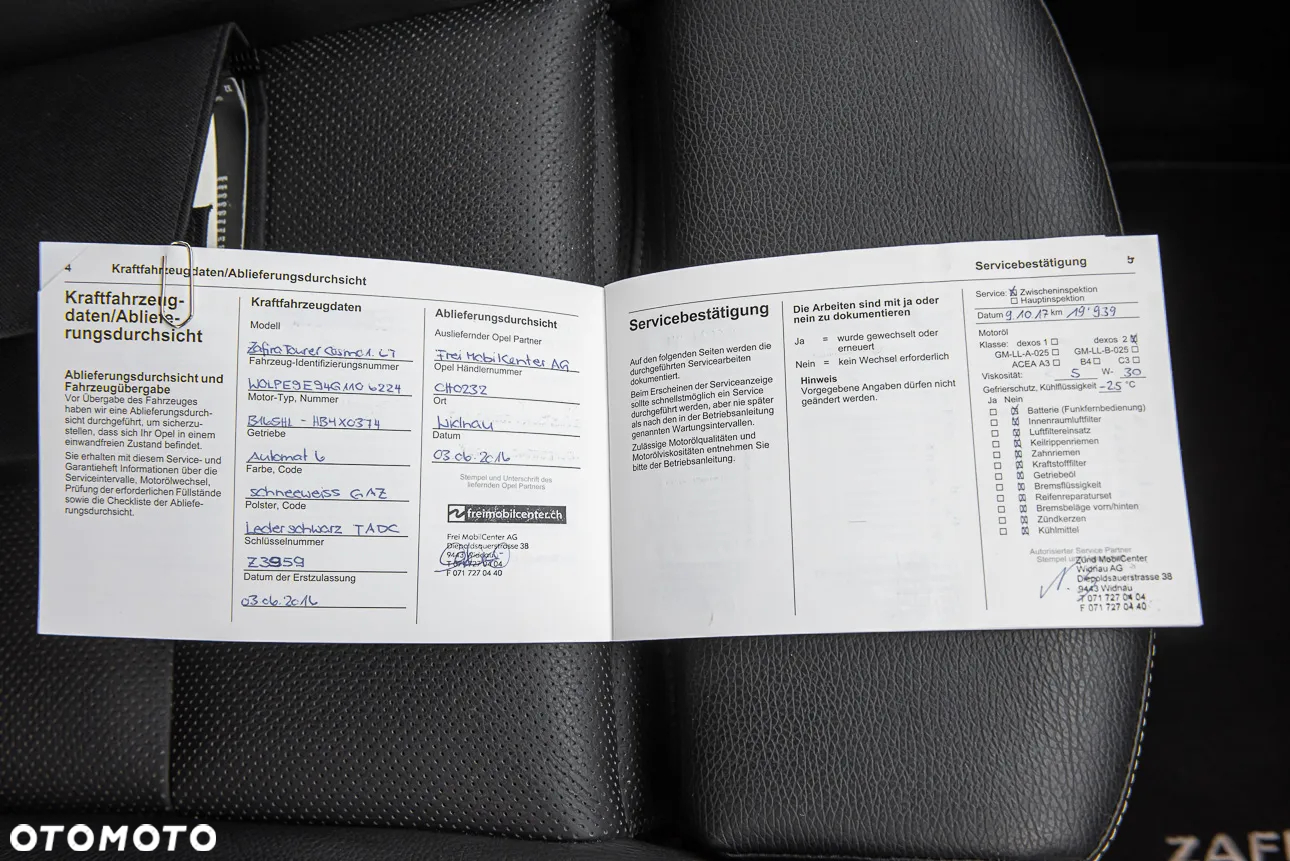 4
Kraftfahrzeugdaten/Ablieferungsdurchsicht
Kraftfahrzeug-
daten/Abliefe-
rungsdurchsicht
Ablieferungsdurchsicht und
Fahrzeugübergabe
Vor Übergabe des Fahrzeuges
haben wir eine Ablieferungsdurch-
sicht durchgeführt, um sicherzu-
stellen, dass sich Ihr Opel in einem
einwandfreien Zustand befindet.
Sie erhalten mit diesem Service- und
Garantieheft Informationen über die
Serviceintervalle, Motorölwechsel,
Prüfung der erforderlichen Füllstände
sowie die Checkliste der Abliefe-
rungsdurchsicht.
Kraftfahrzeugdaten
Modell
Zafira Tourer Cosmo 1.6T
Fahrzeug-Identifizierungsnummer
W0LPE9E94G1106224
Motor-Typ, Nummer
B16SHL - HB4X0374
Getriebe
Automat 6
Farbe, Code
schneeweiss GAZ
Polster, Code
Leder schwarz TADC
Schlüsselnummer
Z3959
Datum der Erstzulassung
03.06.2016
Ablieferungsdurchsicht
Ausliefernder Opel Partner
Frei MobilCenter AG
Opel Händlernummer
CH0232
Ort
Widnau
Datum
03.06.2016
Stempel und Unterschrift des
liefernden Opel Partners
freimobilcenter.ch
Frei MobilCenter AG
Diepoldsauerstrasse 38
9443 Widnau
T 071 727 04 04
F 071 727 04 40
Servicebestätigung
5
Servicebestätigung
Auf den folgenden Seiten werden die
durchgeführten Servicearbeiten
dokumentiert.
Beim Erscheinen der Serviceanzeige
sollte schnellstmöglich ein Service
durchgeführt werden, aber nie später
als nach den in der Betriebsanleitung
genannten Wartungsintervallen.
Zulässige Motorölqualitäten und
Motorölviskositäten entnehmen Sie
bitte der Betriebsanleitung.
Die Arbeiten sind mit ja oder
nein zu dokumentieren
Ja = wurde gewechselt oder
erneuert
Nein = kein Wechsel erforderlich
Hinweis
Vorgegebene Angaben dürfen nicht
geändert werden.
Service: Zwischeninspektion
Hauptinspektion
Datum 9.10.17 km 19'939
Motoröl
Klasse: dexos 1 dexos 2
GM-LL-A-025 GM-LL-B-025
ACEA A3 B4 C3
Viskosität: 5 W- 30
Gefrierschutz, Kühlflüssigkeit -25 °C
Ja Nein
Batterie (Funkfernbedienung)
Innenraumluftfilter
Luftfiltereinsatz
Keilrippenriemen
Zahnriemen
Kraftstofffilter
Getriebeöl
Bremsflüssigkeit
Reifenreparaturset
Bremsbeläge vorn/hinten
Zündkerzen
Kühlmittel
Autorisierter Service Partner
Stempel
Zünd MobilCenter
Widnau AG
Diepoldsauerstrasse 38
9443 Widnau
T 071 727 04 04
F 071 727 04 40
OTOMOTO
ZAFI